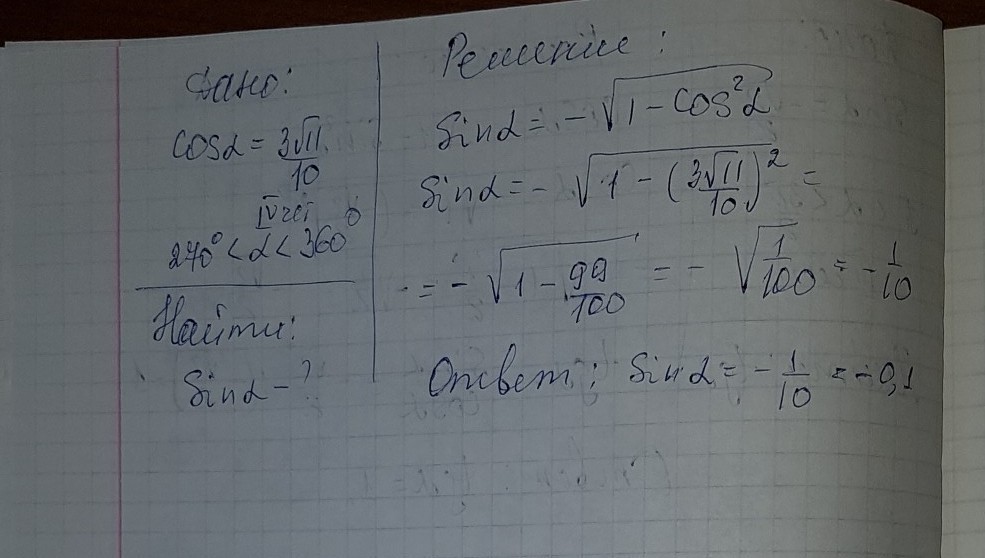 Дано:
cosα = 3√11/10
IV чет
270° < α < 360°
Найти:
Sinα - ?
Решение:
Sinα = -√(1 - cos²α)
Sinα = -√(1 - (3√11/10)²) =
= -√(1 - 99/100) = -√(1/100) = -1/10
Ответ: Sinα = -1/10 = -0,1